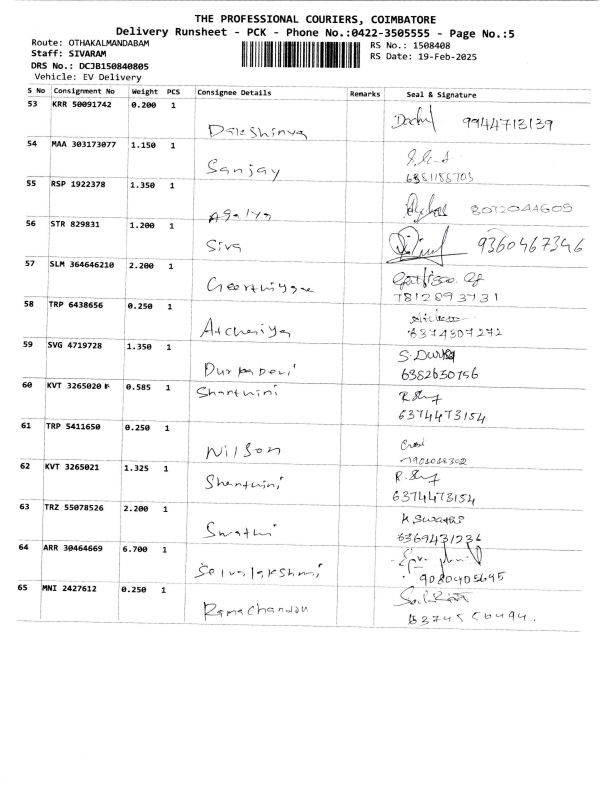 THE PROFESSIONAL COURIERS, COIMBATORE
Delivery Runsheet - PCK - Phone No.:0422-3505555 - Page No.:5
Route: OTHAKALMANDABAM
RS No.: 1508408
Staff: SIVARAM
RS Date: 19-Feb-2025
DRS No.: DCJB150840805
Vehicle: EV Delivery
S No Consignment No Weight PCS Consignee Details Remarks Seal & Signature
53 KRR 50091742 0.200 1
9944713139
54 MAA 303173077 1.150 1
Sanjay
55 RSP 1922378 1.350 1
Agalya
8072044605
56 STR 829831 1.200 1
Siva 9360467346
57 SLM 364646210 2.200 1
7812893731
58 TRP 6438656 0.250 1
6374307272
59 SVG 4719728 1.350 1
S. Durga
Durgadevi
6382650756
60 KVT 3265020 0.585 1
Shanthini
6374473154
61 TRP 5411650 0.250 1
Wilson
62 KVT 3265021 1.325 1
Shanthini
6374473154
63 TRZ 55078526 2.200 1
K Swathi
Swathi
6369431236
64 ARR 30464669 6.700 1
Selvalakshmi
9080405645
65 MNI 2427612 0.250 1
Ramachandan